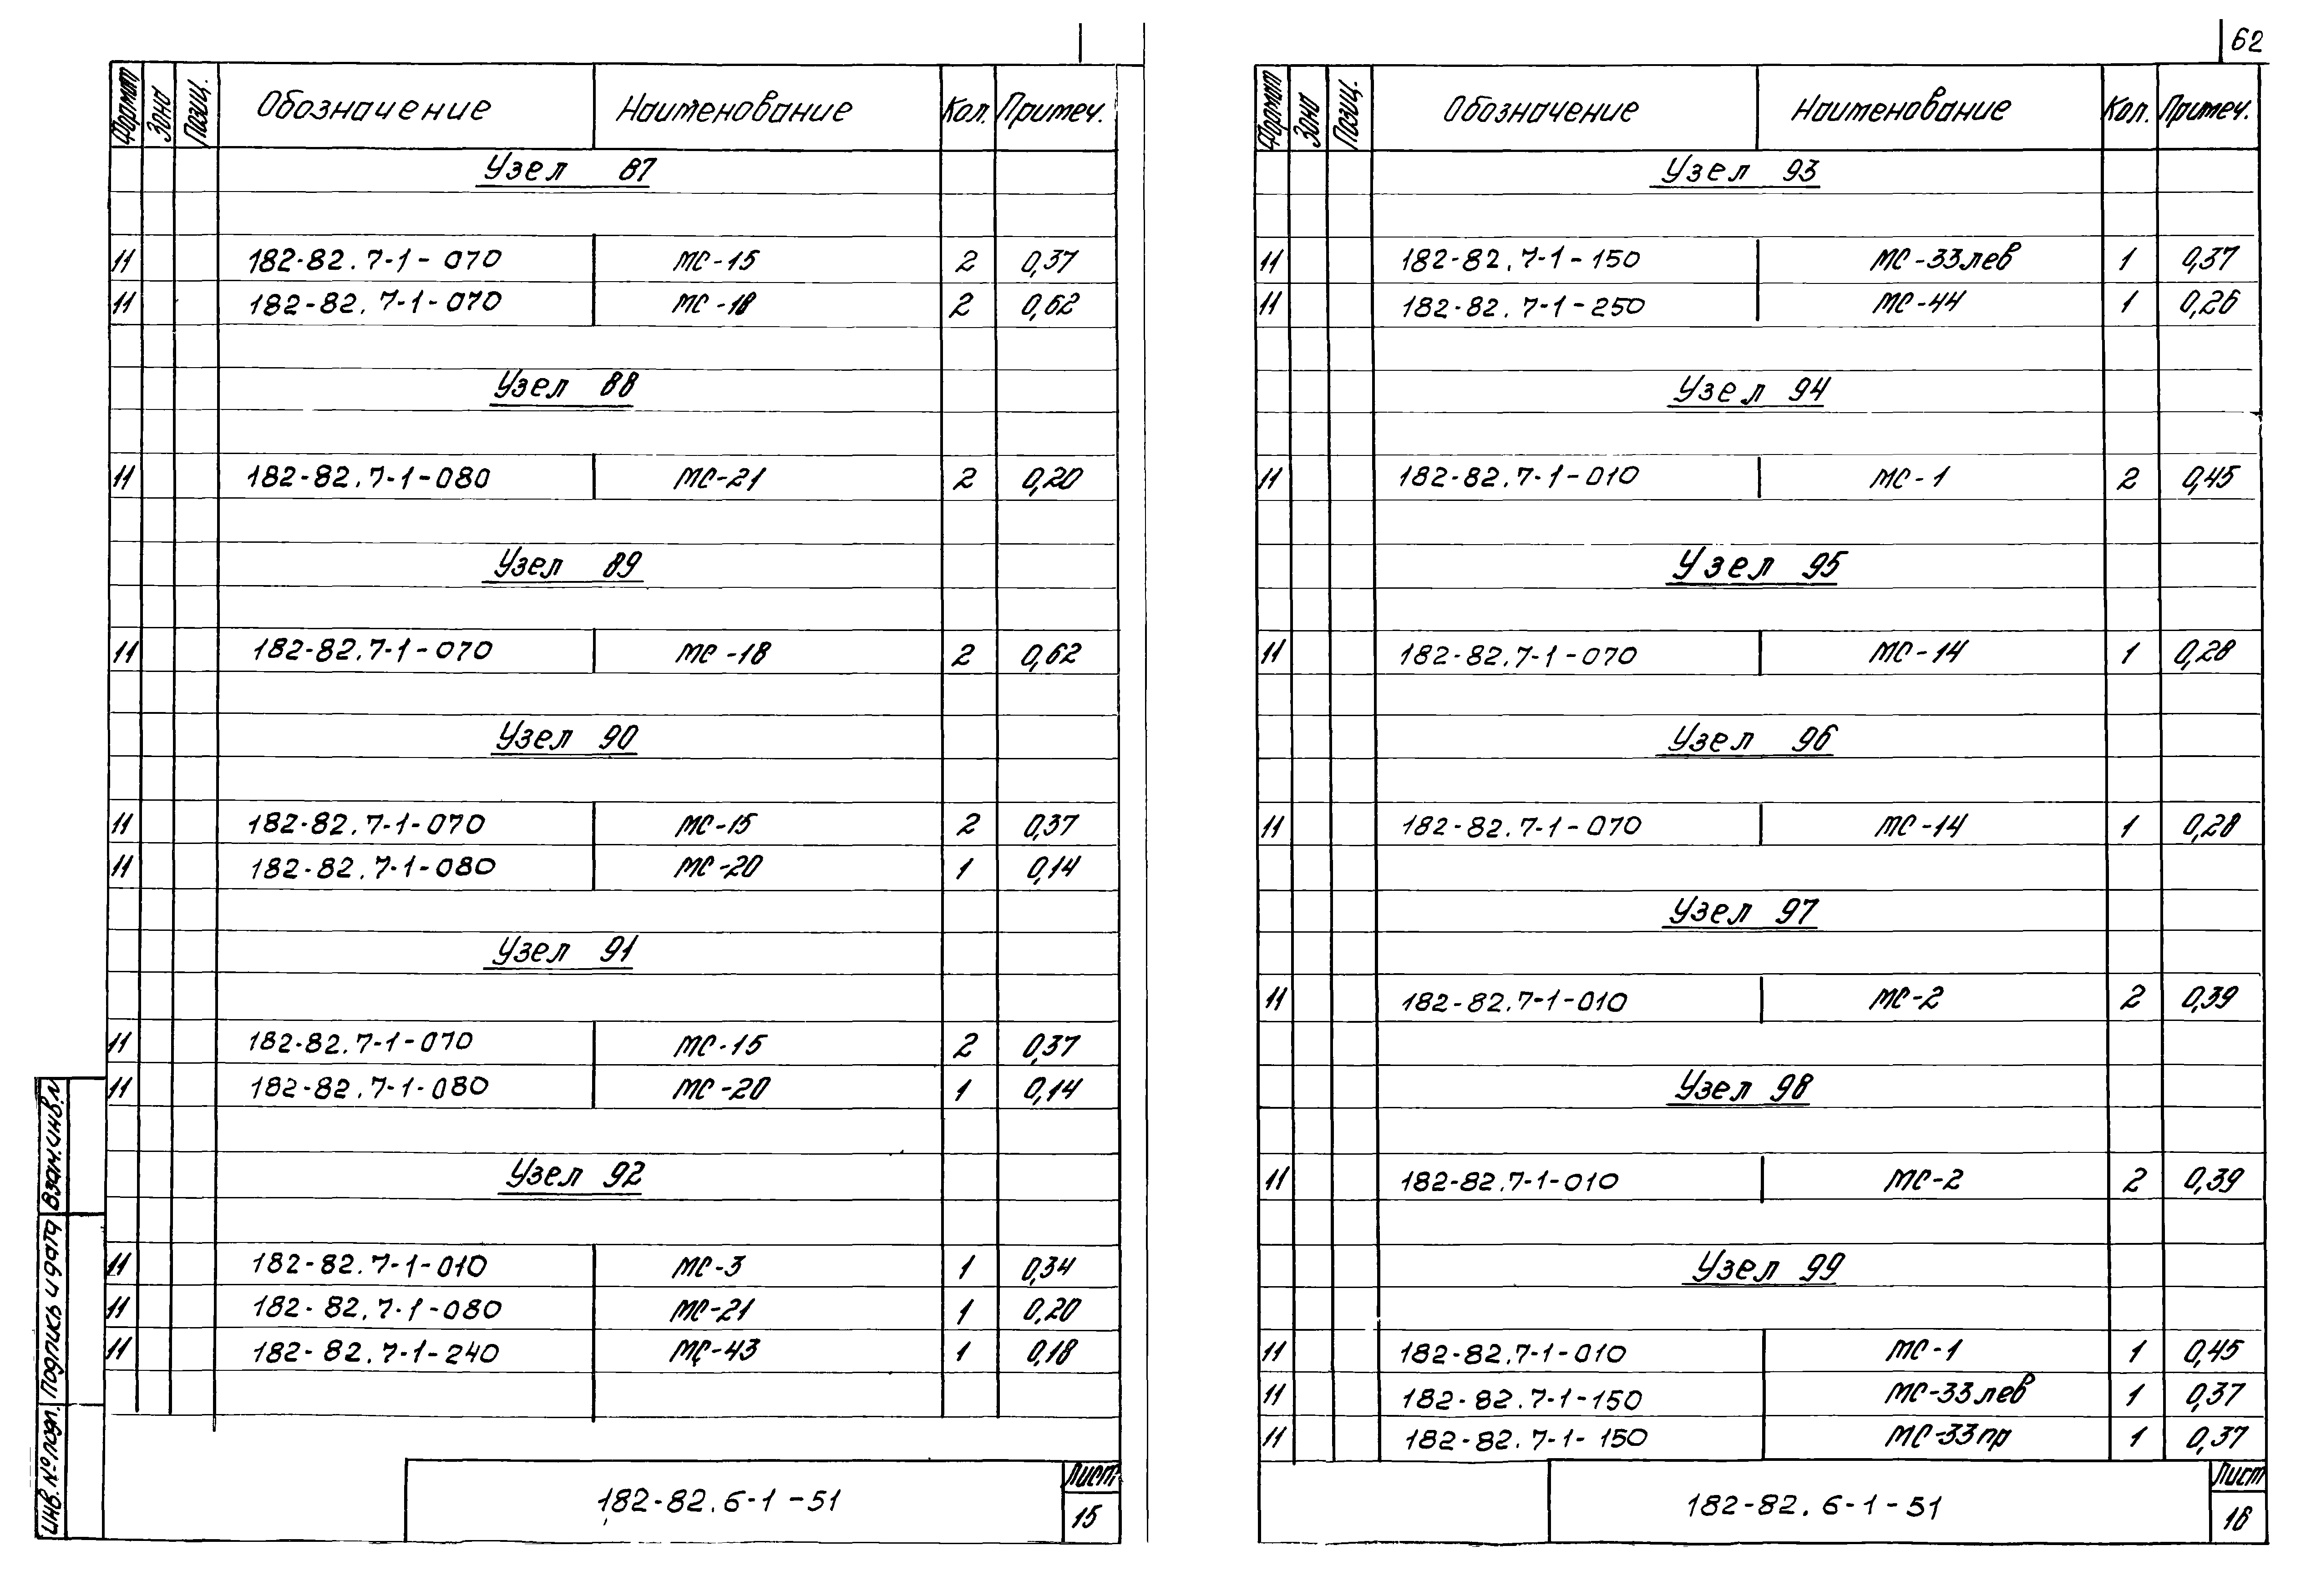 Формат Зона Позиц. Обозначение Наименование Кол. Примеч.
Узел 87
11 182-82.7-1-070 МС-15 2 0,37
11 182-82.7-1-070 МС-18 2 0,62
Узел 88
11 182-82.7-1-080 МС-21 2 0,20
Узел 89
11 182-82.7-1-070 МС-18 2 0,62
Узел 90
11 182-82.7-1-070 МС-15 2 0,37
11 182-82.7-1-080 МС-20 1 0,14
Узел 91
11 182-82.7-1-070 МС-15 2 0,37
11 182-82.7-1-080 МС-20 1 0,14
Узел 92
11 182-82.7-1-010 МС-3 1 0,34
11 182-82.7-1-080 МС-21 1 0,20
11 182-82.7-1-240 МС-43 1 0,18
Взам.инв.N
Подпись и дата
Инв.№ подл.
182-82.6-1-51
Лист
15
62
Формат Зона Позиц. Обозначение Наименование Кол. Примеч.
Узел 93
11 182-82.7-1-150 МС-33лев 1 0,37
11 182-82.7-1-250 МС-44 1 0,26
Узел 94
11 182-82.7-1-010 МС-1 2 0,45
Узел 95
11 182-82.7-1-070 МС-14 1 0,28
Узел 96
11 182-82.7-1-070 МС-14 1 0,28
Узел 97
11 182-82.7-1-010 МС-2 2 0,39
Узел 98
11 182-82.7-1-010 МС-2 2 0,39
Узел 99
11 182-82.7-1-010 МС-1 1 0,45
11 182-82.7-1-150 МС-33лев 1 0,37
11 182-82.7-1-150 МС-33пр 1 0,37
182-82.6-1-51
Лист
16